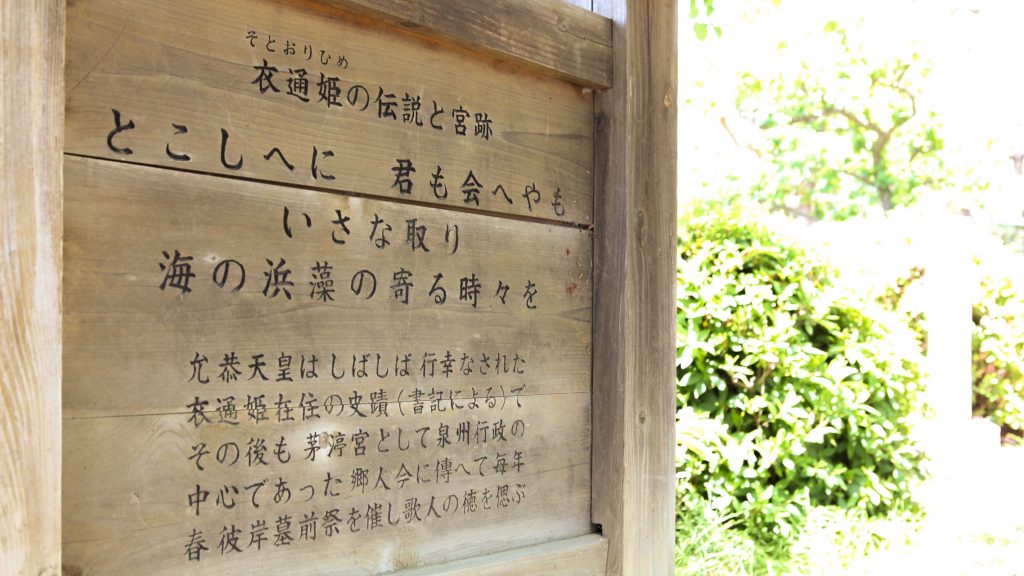 そとおりひめ
衣通姫の伝説と宮跡
とこしへに 君も会へやも
いさな取り
海の浜藻の寄る時々を
允恭天皇はしばしば行幸なされた
衣通姫在住の史蹟(書記による)で
その後も茅渟宮として泉州行政の
中心であった郷人今に傳へて毎年
春彼岸墓前祭を催し歌人の徳を偲ぶ